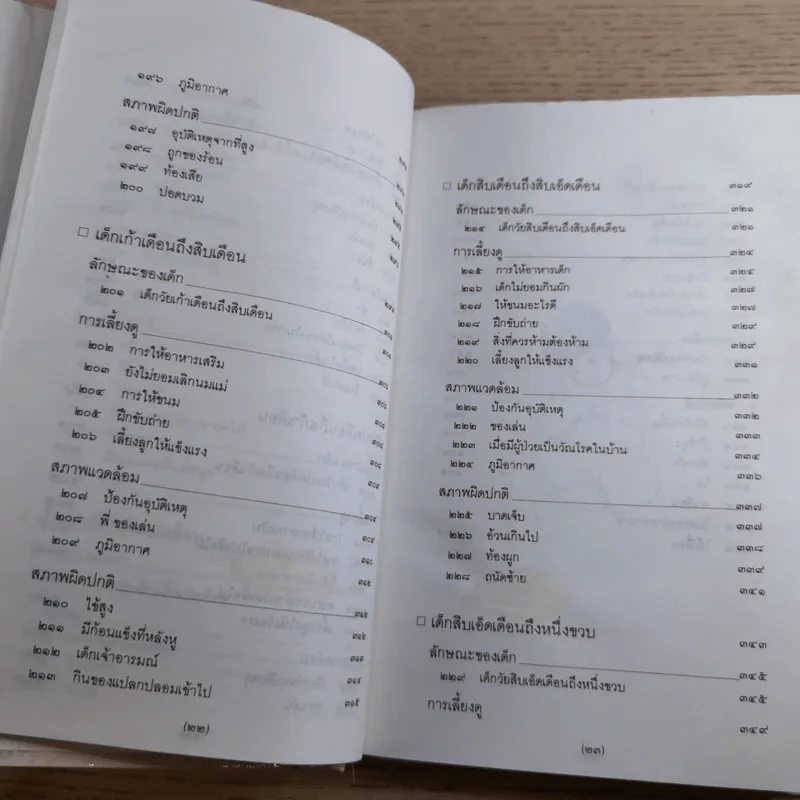 ๑๙๖ ภูมิอากาศ
สภาพผิดปกติ
๑๙๗ อุบัติเหตุจากที่สูง
๑๙๘ ถูกของร้อน
๑๙๙ ท้องเสีย
๒๐๐ ปอดบวม
□ เด็กเก้าเดือนถึงสิบเดือน
ลักษณะของเด็ก
๒๐๑ เด็กวัยเก้าเดือนถึงสิบเดือน
การเลี้ยงดู
๒๐๒ การให้อาหารเสริม
๒๐๓ ยังไม่ยอมเลิกนมแม่
๒๐๔ การให้ขนม
๒๐๕ ฝึกขับถ่าย
๒๐๖ เลี้ยงลูกให้แข็งแรง
สภาพแวดล้อม
๒๐๗ ป้องกันอุบัติเหตุ
๒๐๘ พี่ ของเล่น
๒๐๙ ภูมิอากาศ ๓๑๐
สภาพผิดปกติ ๓๑๒
๒๑๐ ไข้สูง ๓๑๒
๒๑๑ มีก้อนแข็งที่หลังหู ๓๑๒
๒๑๒ เด็กเจ้าอารมณ์ ๓๑๓
๒๑๓ กินของแปลกปลอมเข้าไป ๓๑๔
๓๑๕
(๒๒)
□ เด็กสิบเดือนถึงสิบเอ็ดเดือน ๓๑๙
ลักษณะของเด็ก ๓๒๑
๒๑๔ เด็กวัยสิบเดือนถึงสิบเอ็ดเดือน ๓๒๑
การเลี้ยงดู ๓๒๔
๒๑๕ การให้อาหารเด็ก ๓๒๔
๒๑๖ เด็กไม่ยอมกินผัก ๓๒๗
๒๑๗ ให้ขนมอะไรดี ๓๒๗
๒๑๘ ฝึกขับถ่าย ๓๒๙
๒๑๙ สิ่งที่ควรห้ามต้องห้าม ๓๒๙
๒๒๐ เลี้ยงลูกให้แข็งแรง ๓๓๑
สภาพแวดล้อม ๓๓๒
๒๒๑ ป้องกันอุบัติเหตุ ๓๓๒
๒๒๒ ของเล่น ๓๓๓
๒๒๓ เมื่อมีผู้ป่วยเป็นวัณโรคในบ้าน ๓๓๔
๒๒๔ ภูมิอากาศ ๓๓๖
สภาพผิดปกติ ๓๓๗
๒๒๕ บาดเจ็บ ๓๓๗
๒๒๖ อ้วนเกินไป ๓๓๘
๒๒๗ ท้องผูก ๓๓๙
๒๒๘ ถนัดซ้าย ๓๔๑
□ เด็กสิบเอ็ดเดือนถึงหนึ่งขวบ ๓๔๓
ลักษณะของเด็ก ๓๔๕
๒๒๙ เด็กวัยสิบเอ็ดเดือนถึงหนึ่งขวบ ๓๔๕
การเลี้ยงดู ๓๔๙
(๒๓)